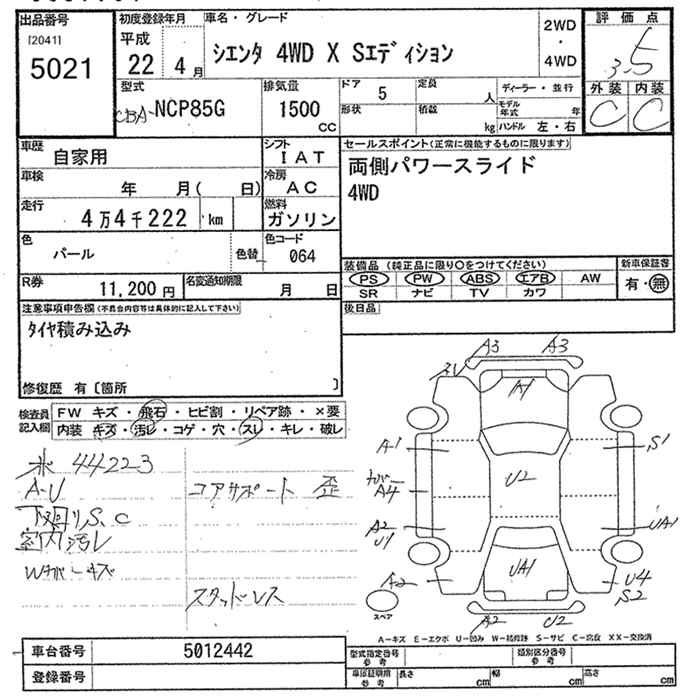 出品番号
[2041]
5021
初度登録年月
平成
22 4 月
車名・グレード
シエンタ 4WD X Sエディション
2WD
・
4WD
評価点
3.5
外装 内装
C C
型式
CBA-NCP85G
排気量
1500
CC
ドア
5
定員
人
形状
積載
kg
ディーラー・並行
モデル年式
年
ハンドル 左・右
車歴
自家用
シフト
IAT
車検
年 月( 日)
冷房
AC
走行
4万4千222 km
燃料
ガソリン
色
パール
色替
色コード
064
R券
11,200 円
名変通知期限
月 日
セールスポイント(正常に機能するものに限ります)
両側パワースライド
4WD
装備品 (純正品に限り〇をつけてください)
PS PW ABS エアB AW
SR ナビ TV カワ
新車保証書
有・無
後日品
注意事項申告欄(不具合内容等は具体的に記入して下さい)
タイヤ積み込み
修復歴 有〔箇所 〕
検査員
記入欄
FW キズ・飛石・ヒビ割・リペア跡・×要
内装 キズ・汚レ・コゲ・穴・スレ・キレ・破レ
米 44223
A・U
下廻り S、C
室内汚レ
Wカバーキズ
コアサポート 歪
スタッドレス
A3 A3
A1
A1
S1
U2
A4
A2
U1
UA1
UA1
A2
U4
S2
A2 U2
スペア
A-キズ E-エクボ U-凹み W-補修跡 S-サビ C-腐食 XX-交換済
車台番号 5012442
登録番号
型式指定番号
参考
類別区分番号
参考
車検証明用
参考
長さ cm
幅 cm
高さ cm